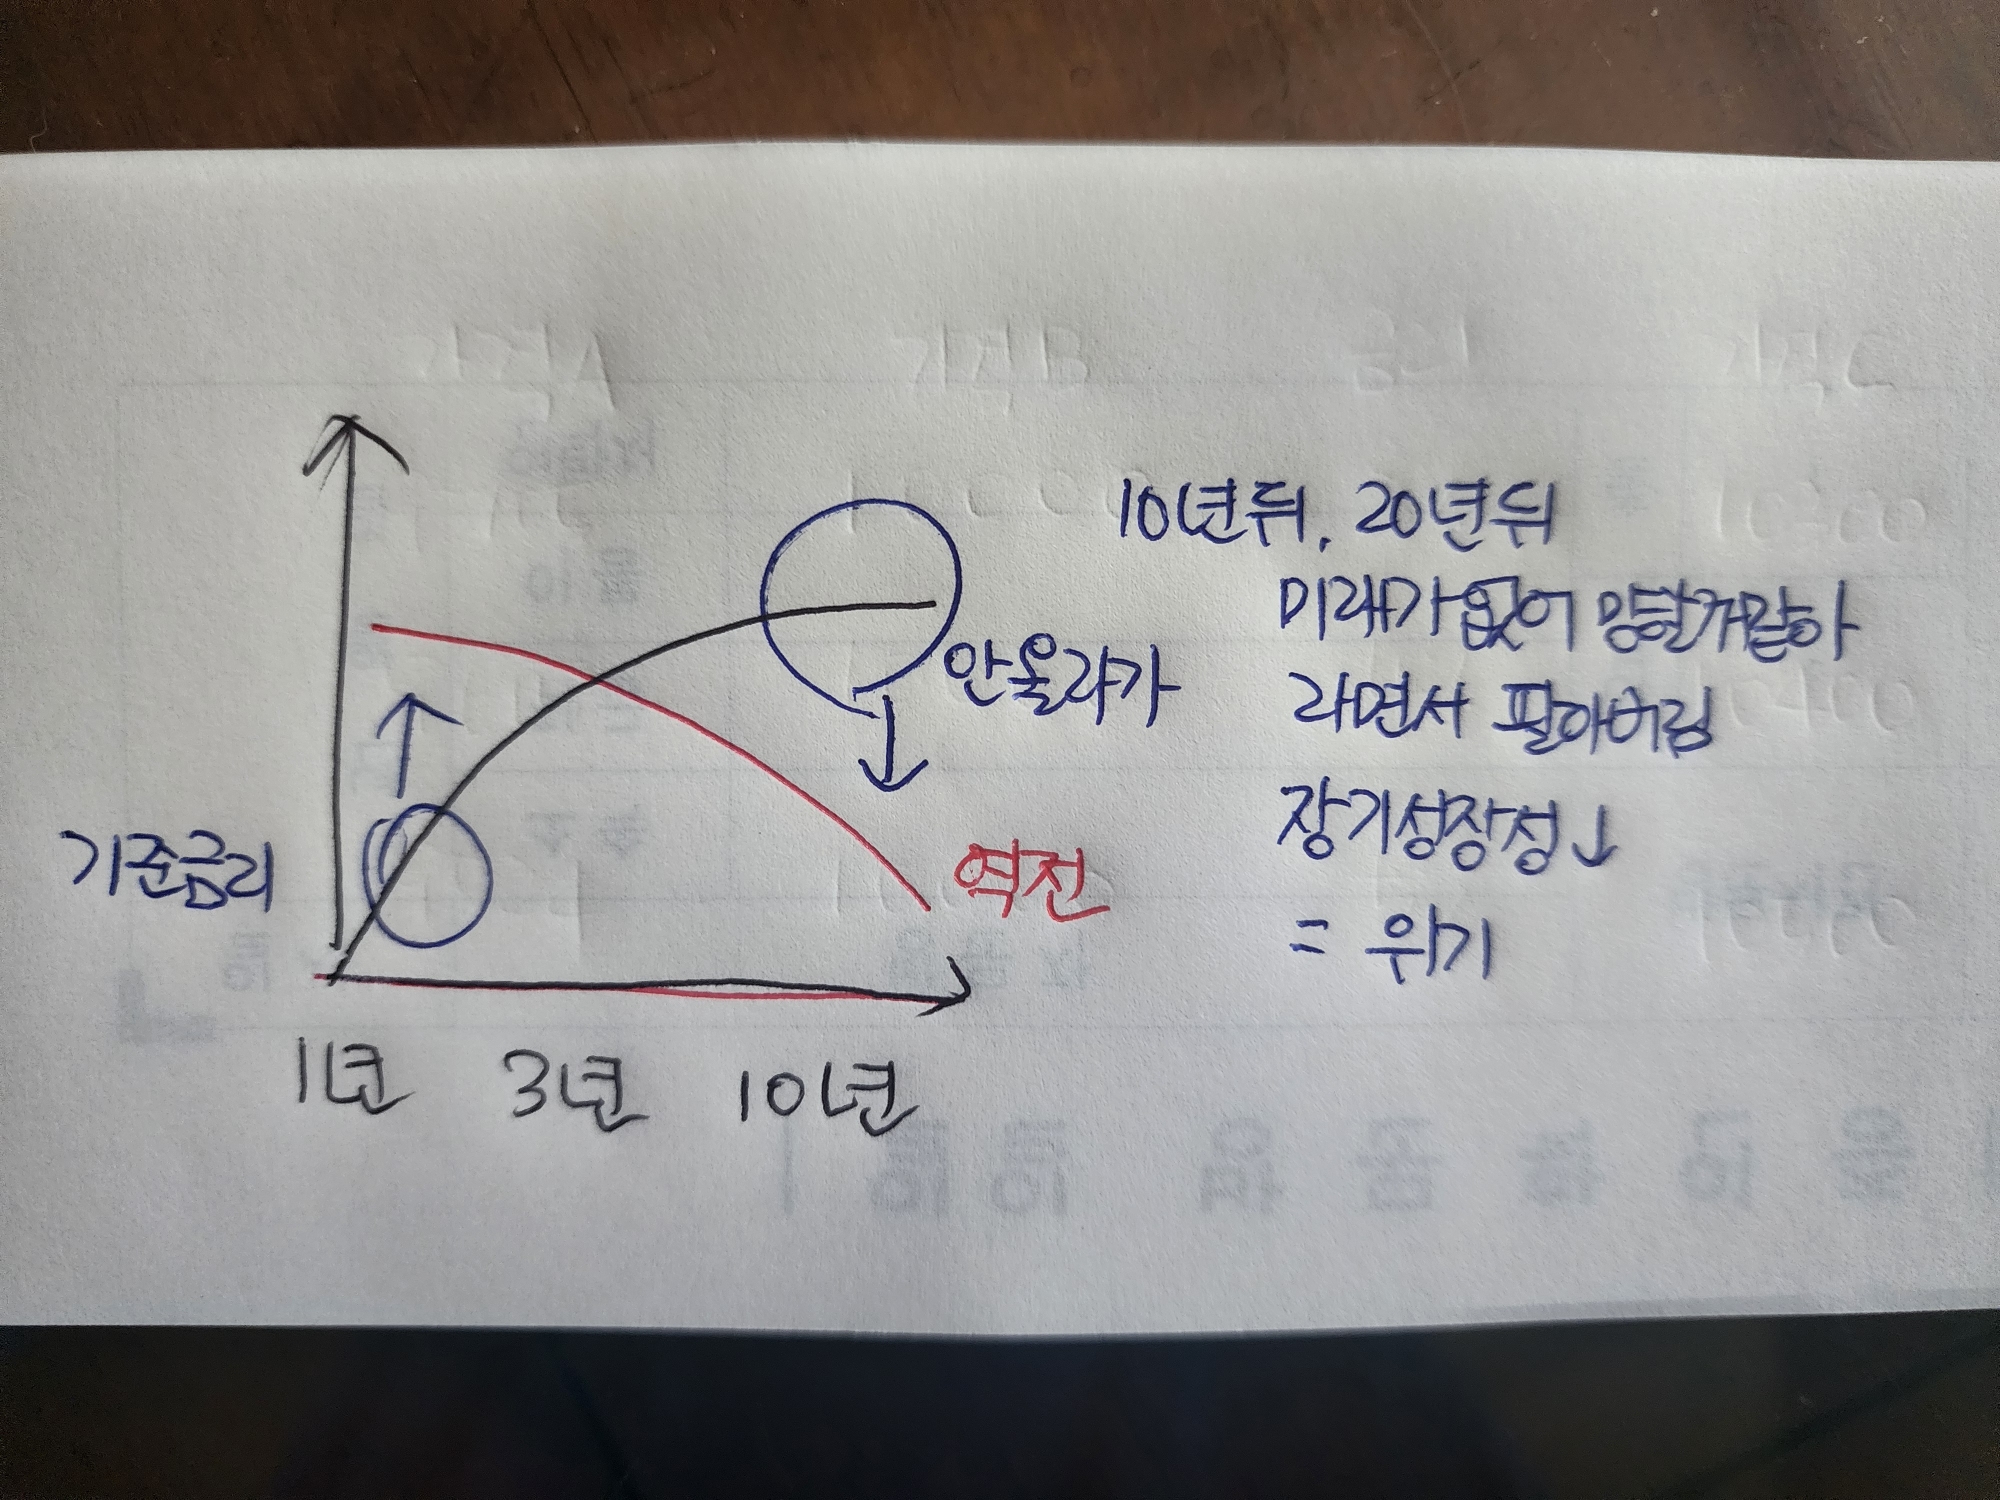 10년뒤, 20년뒤
미래가 없어 망할거같아
라면서 팔아버림
안올라가
장기성장성↓
기준금리
역전
= 위기
1년 3년 10년